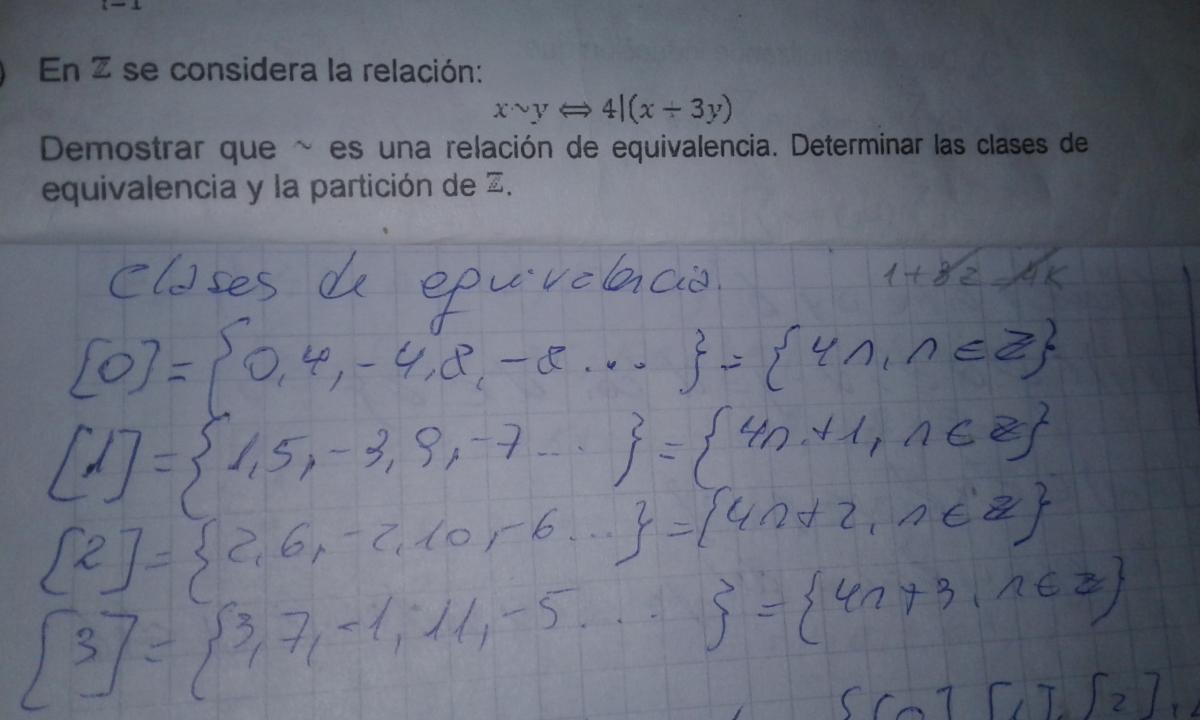 En ℤ se considera la relación:
x~y ⟺ 4|(x + 3y)
Demostrar que ~ es una relación de equivalencia. Determinar las clases de
equivalencia y la partición de ℤ.
Clases de equivalencia.
[0] = {0, 4, -4, 8, -8 ... } = {4n, n ∈ ℤ}
[1] = {1, 5, -3, 9, -7 ... } = {4n+1, n ∈ ℤ}
[2] = {2, 6, -2, 10, -6 ... } = {4n+2, n ∈ ℤ}
[3] = {3, 7, -1, 11, -5 .... } = {4n+3, n ∈ ℤ}
{[0], [1], [2],